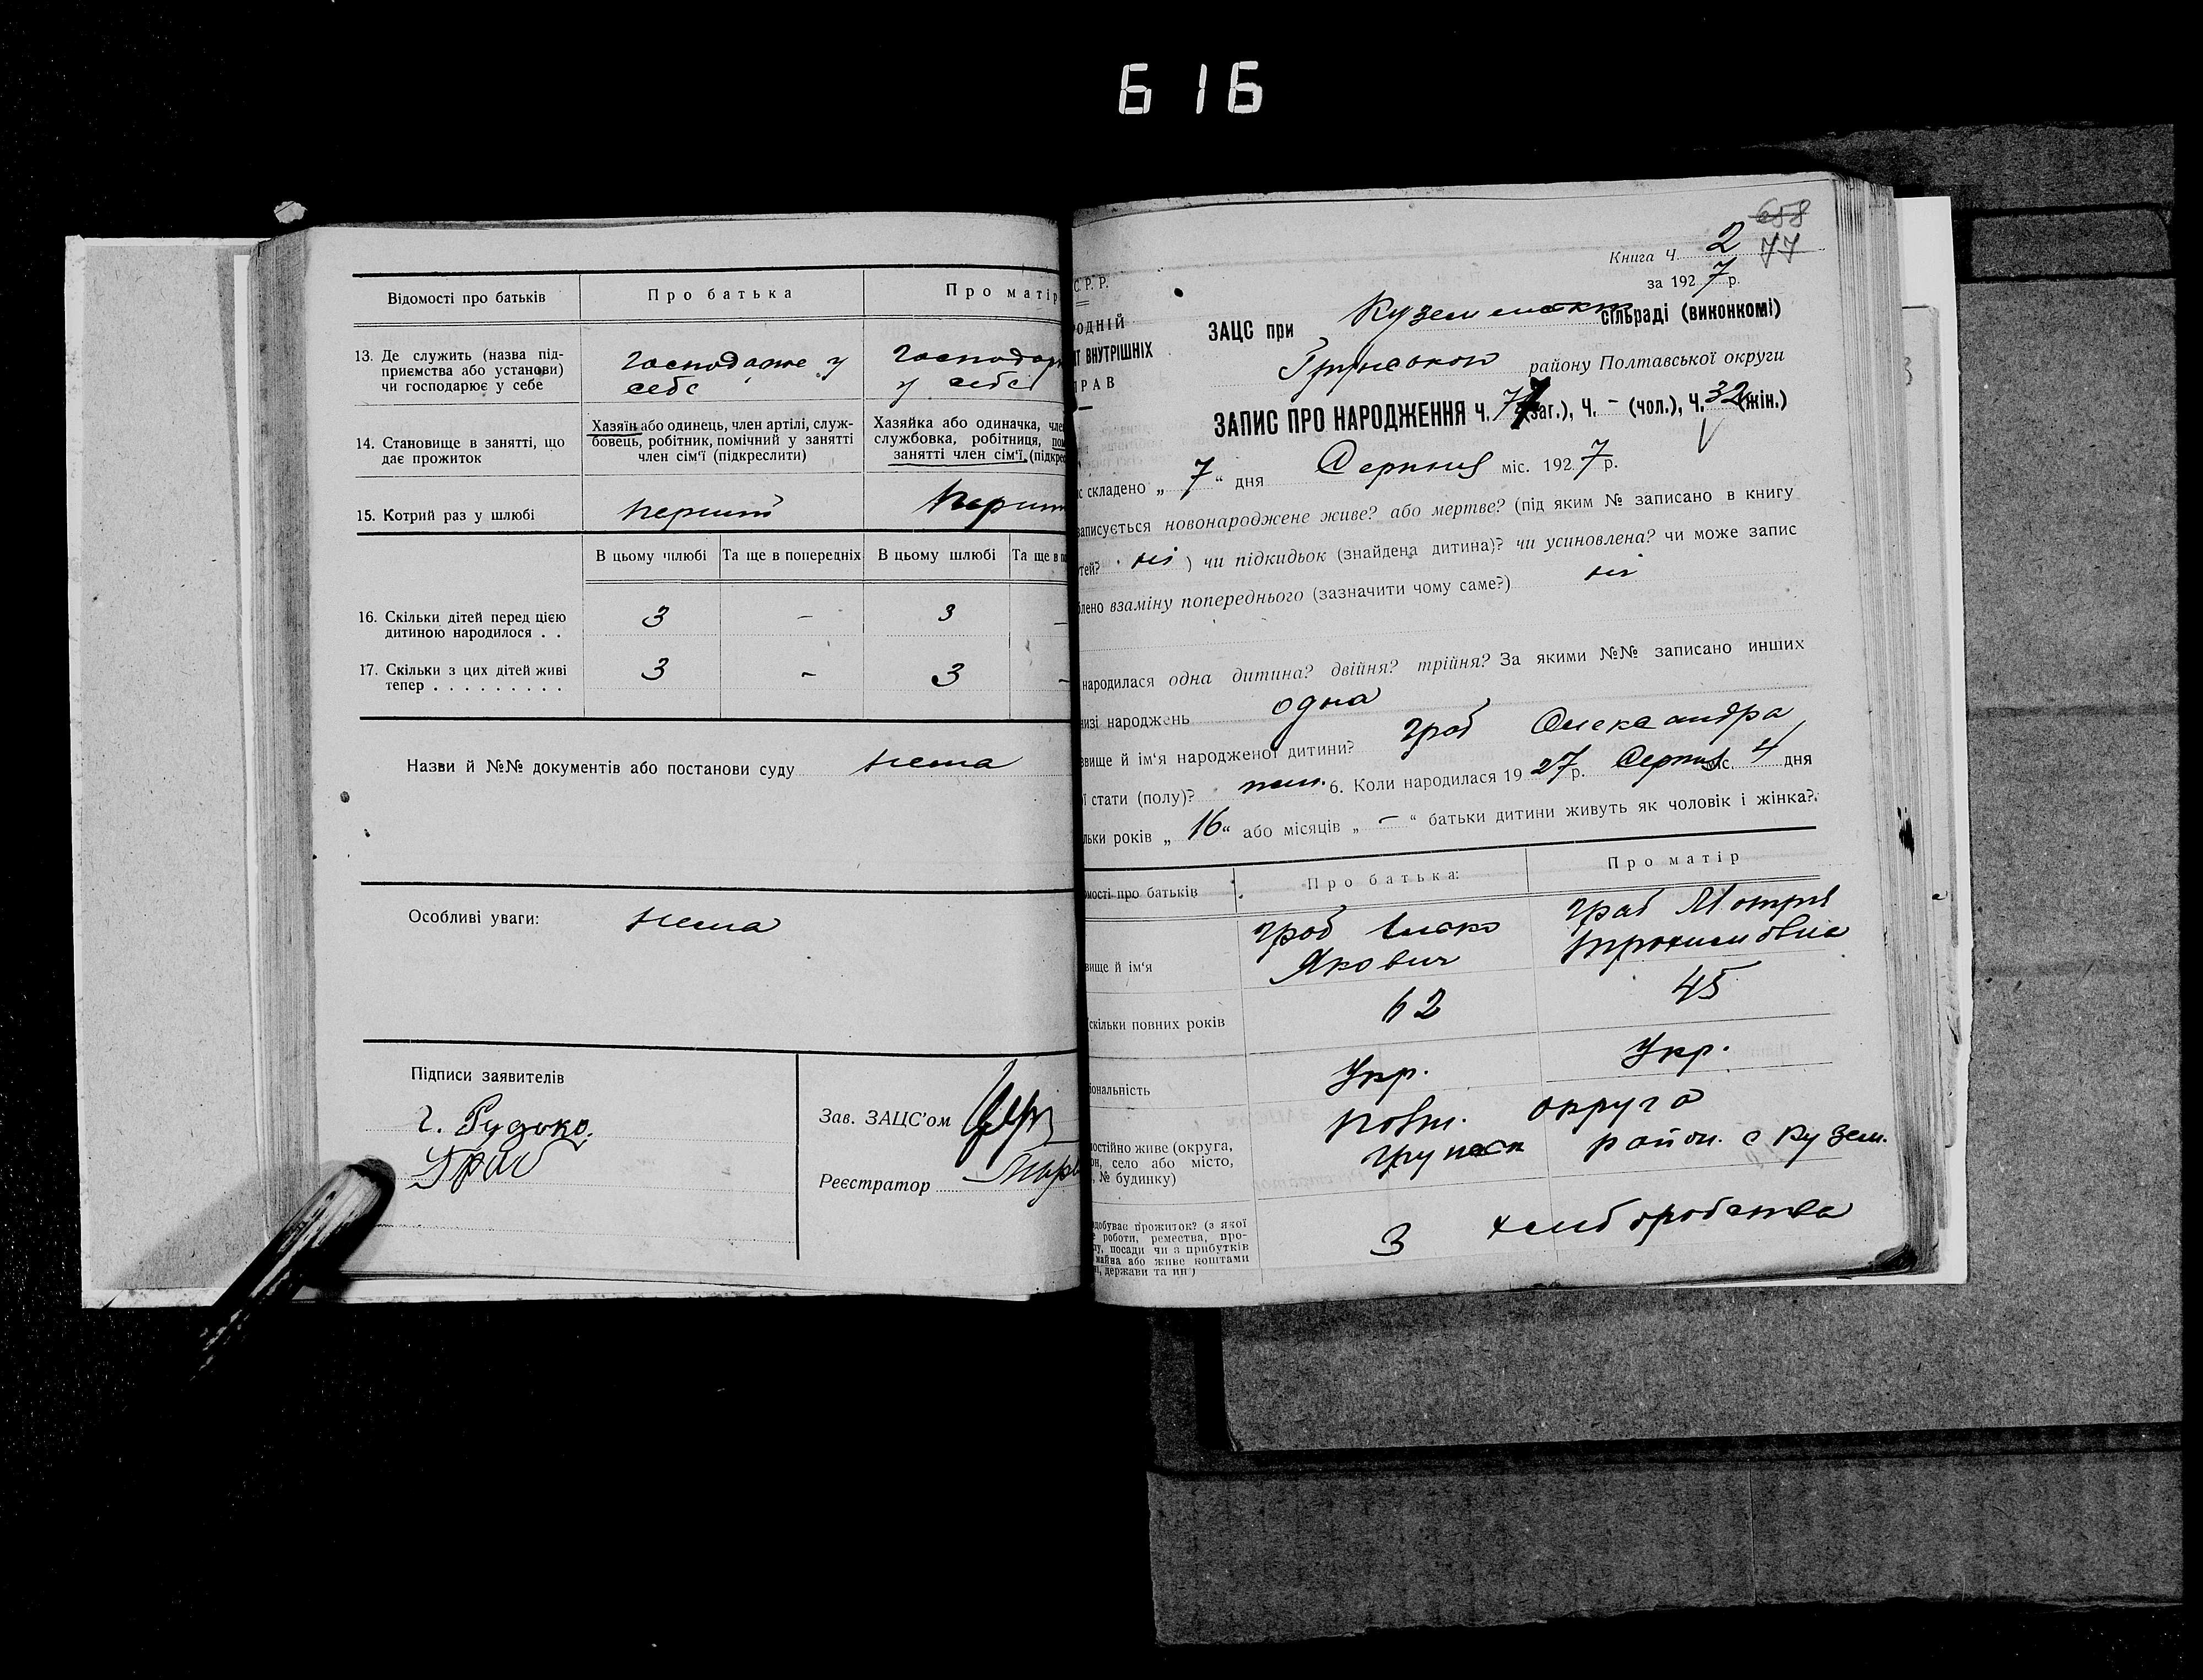 616
Відомості про батьків
Про батька
Про матір
13. Де служить (назва під-
приємства або установи)
чи господарює у себе
господарює у
себе
господарю
у себе
14. Становище в занятті, що
дає прожиток
Хазяїн або одинець, член артілі, служ-
бовець, робітник, помічний у занятті
член сім'ї (підкреслити)
Хазяйка або одиначка, чле
службовка, робітниця, пом
занятті член сім'ї (підкрес
15. Котрий раз у шлюбі
перший
В цьому шлюбі
Та ще в попередніх
В цьому шлюбі
Та ще в по
16. Скільки дітей перед цією
дитиною народилося . .
3 - 3 -
17. Скільки з цих дітей живі
тепер . . . . . . . . .
3 - 3 -
Назви й №№ документів або постанови суду нема
Особливі уваги: нема
Підписи заявителів
Зав. ЗАЦС'ом
Реєстратор
658
Книга Ч. 2 77
за 1927 р.
С.Р.Р.
ОДНІЙ
Т ВНУТРІШНІХ
РАВ
ЗАЦС при сільраді (виконкомі)
району Полтавської округи
ЗАПИС ПРО НАРОДЖЕННЯ ч. 77 (заг.), Ч. - (чол.), Ч. 32 (жін.)
с складено „ 7 " дня Серпня міс. 1927 р.
записується новонароджене живе? або мертве? (під яким № записано в книгу
тей? ні ) чи підкидьок (знайдена дитина)? чи усиновлена? чи може запис
лено взаміну попереднього (зазначити чому саме?) ні
народилася одна дитина? двійня? трійня? За якими №№ записано инших
изі народжень одна
звище й ім'я народженої дитини? Граб Олександра
ї стати (полу)? жін. 6. Коли народилася 1927 р. Серпня міс. 4 дня
льки років „ 16 " або місяців „ - " батьки дитини живуть як чоловік і жінка?
омості про батьків
Про батька:
Про матір
вище й ім'я
Граб
Якович
Граб Мотря
Трохимовна
скільки повних років
62
45
іональність
Укр.
Укр.
остійно живе (округа,
он, село або місто,
, № будинку)
Полт. округа
Грунськ район. с Кузем.
добуває прожиток? (з якої
е роботи, ремества, про-
у, посади чи з прибутків
майна або живе коштами
и, держави та ин)
З хлиборобства